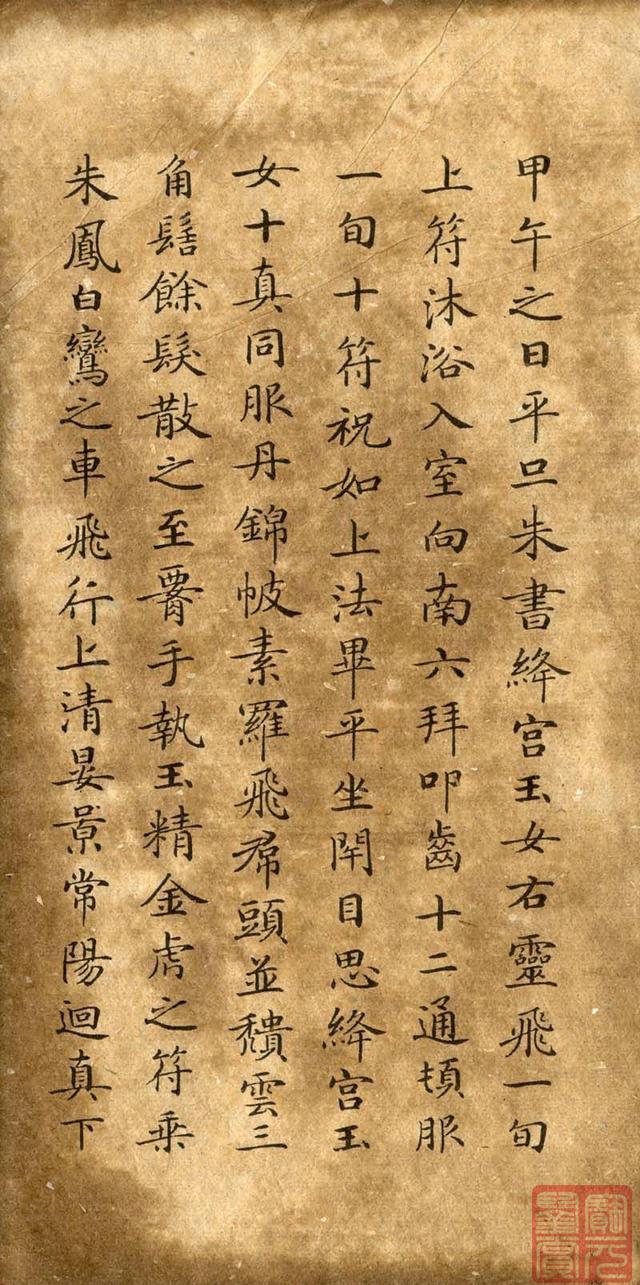 甲午之日平旦朱書絳宮玉女右靈飛一旬
上符沐浴入室向南六拜叩齒十二通頓服
一旬十符祝如上法畢平坐閇目思絳宮玉
女十真同服丹錦帔素羅飛帬頭並穨雲三
角髻餘髮散之至𦝫手執玉精金虎之符乗
朱鳳白鸞之車飛行上清晏景常陽迴真下